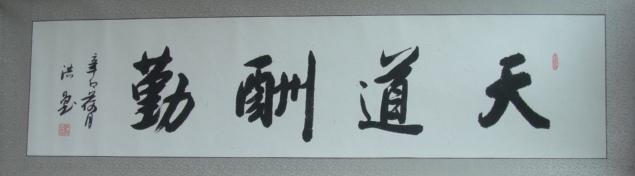 天道酬勤
辛卯荷月
洪